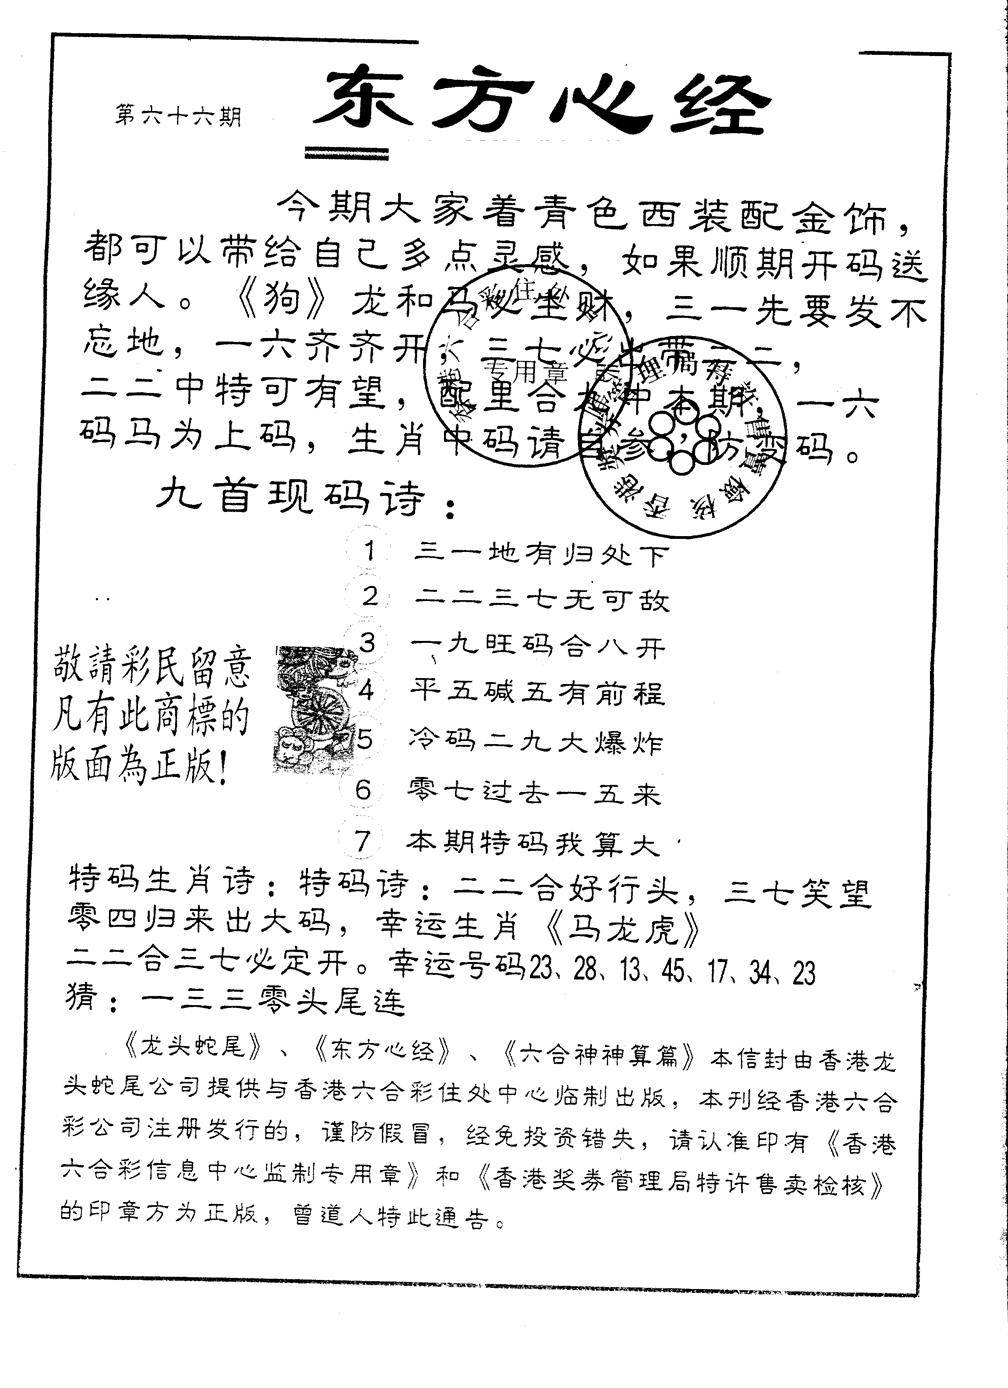 第六十六期
东方心经
今期大家着青色西装配金饰，
都可以带给自己多点灵感，如果顺期开码送
缘人。《狗》龙和马必生财，三一先要发不
忘地，一六齐齐开，三七必出带二二，
二二中特可有望，配里合 中本期，一六
码马为上码，生肖中码请 参，防 码。
专用章
九首现码诗：
1 三一地有归处下
2 二二三七无可敌
3 一九旺码合八开
4 平五碱五有前程
5 冷码二九大爆炸
6 零七过去一五来
7 本期特码我算大
敬請彩民留意
凡有此商標的
版面為正版！
特码生肖诗：特码诗：二二合好行头，三七笑望
零四归来出大码，幸运生肖《马龙虎》
二二合三七必定开。幸运号码23、28、13、45、17、34、23
猜：一三三零头尾连
《龙头蛇尾》、《东方心经》、《六合神神算篇》本信封由香港龙
头蛇尾公司提供与香港六合彩住处中心临制出版，本刊经香港六合
彩公司注册发行的，谨防假冒，经免投资错失，请认准印有《香港
六合彩信息中心监制专用章》和《香港奖券管理局特许售卖检核》
的印章方为正版，曾道人特此通告。